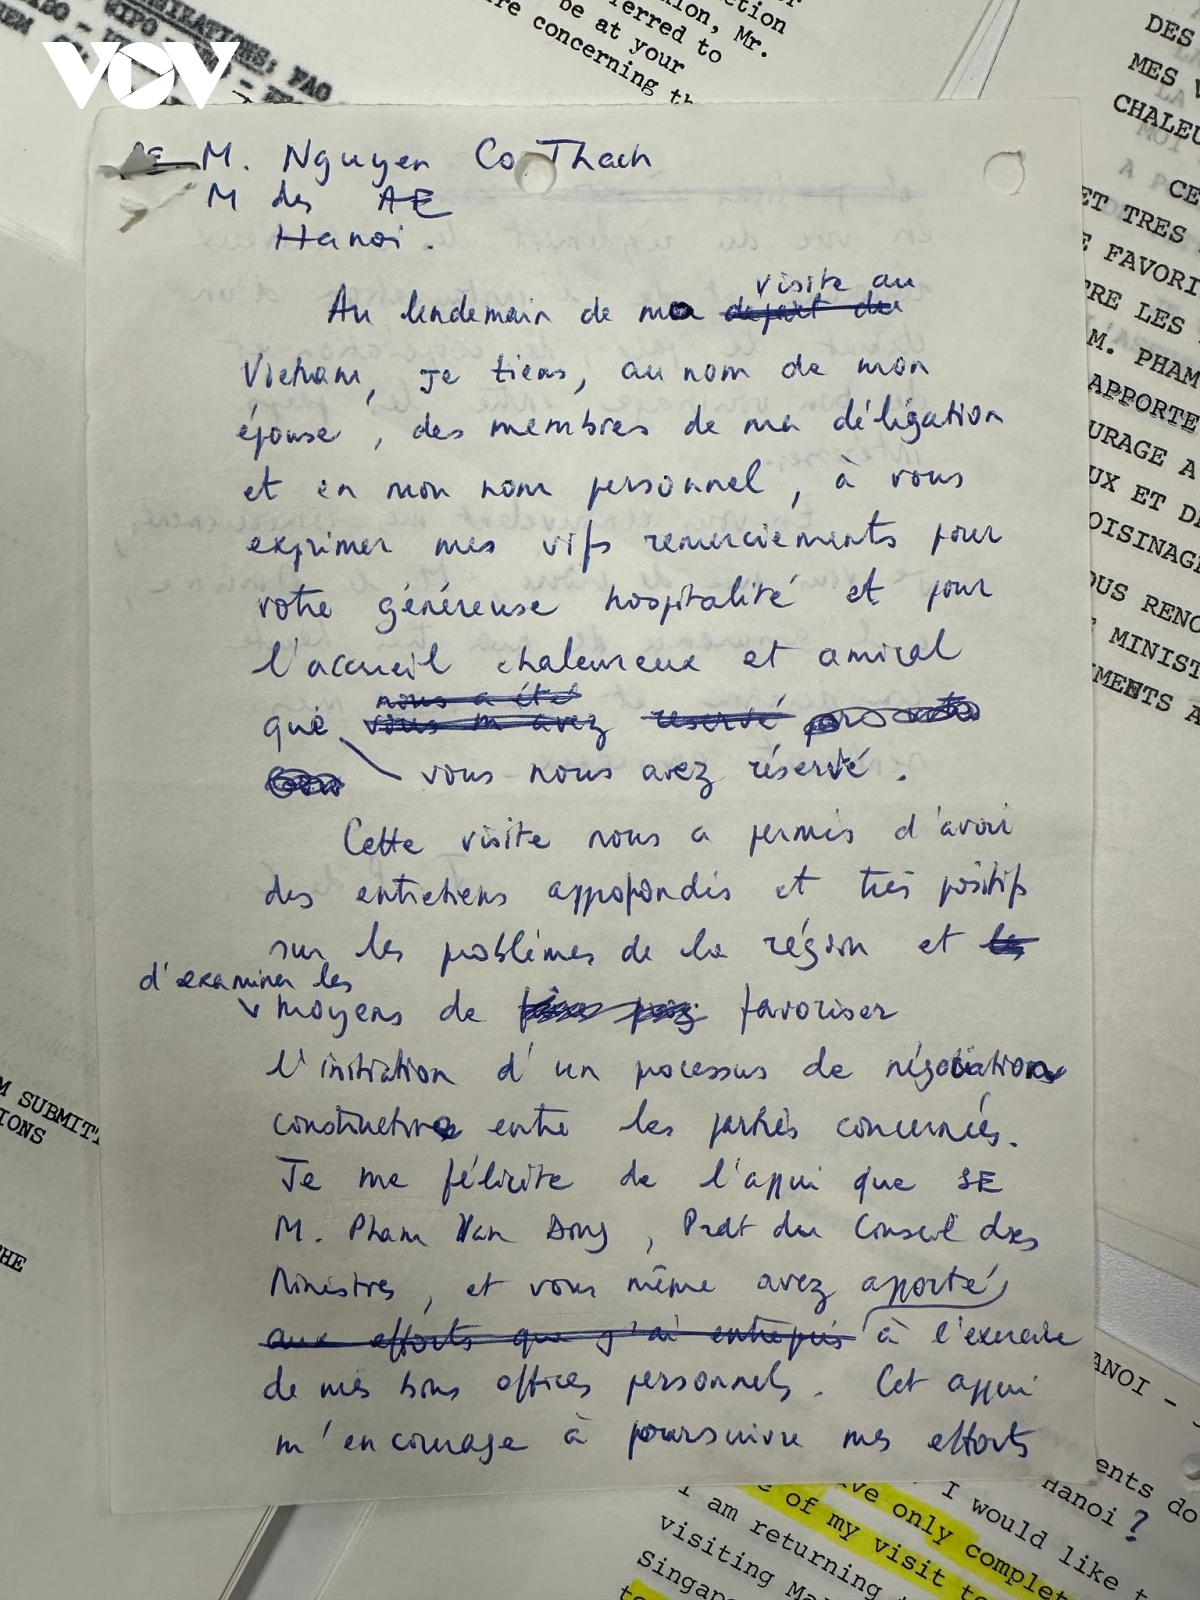 VOV
ction
sion, Mr.
erred to
be at your
re concerning th
DES
MES V
CHALEU
CE
ET TRES
E FAVORI
TRE LES
M. PHAM
APPORTE
URAGE A
UX ET D
OISINAGE
OUS RENO
MINIST
MENTS A
SE M. Nguyen Co Thach
M des AE
Hanoi.
visite au
Au lendemain de ma depart du
Vietnam, je tiens, au nom de mon
épouse, des membres de ma délégation
et en mon nom personnel, à vous
exprimer mes vifs remerciements pour
votre généreuse hospitalité et pour
l'accueil chaleureux et amical
nous a été
que vous m'avez reservé
vous nous avez réservé.
Cette visite nous a permis d'avoir
des entretiens approfondis et très positifs
sur les problèmes de la région et les
d'examiner les
moyens de favoriser
l'initiation d'un processus de négociations
constructives entre les parties concernées.
Je me félicite de l'appui que SE
M. Pham Van Dong, Prdt du Conseil des
Ministres, et vous même avez apporté
aux efforts que j'ai entrepris à l'exercice
de mes bons offices personnels. Cet appui
m'encourage à poursuivre mes efforts
M SUBMITT
IONS
CHE
ANOI -
ents do
Hanoi ?
I would like t
ve only complet
e of my visit to
I am returning
visiting Ma
Singap
to